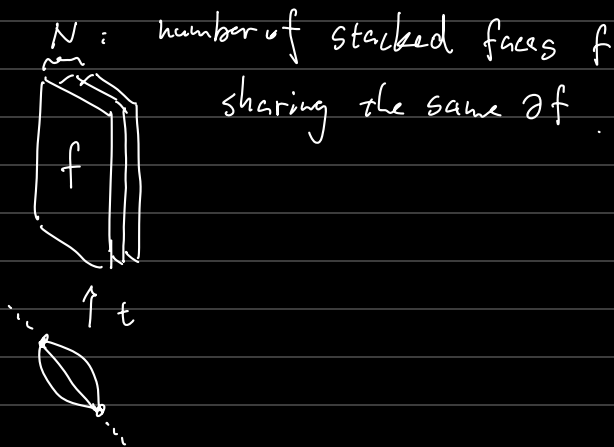 N : number of stacked faces f
sharing the same ∂f .
f
t